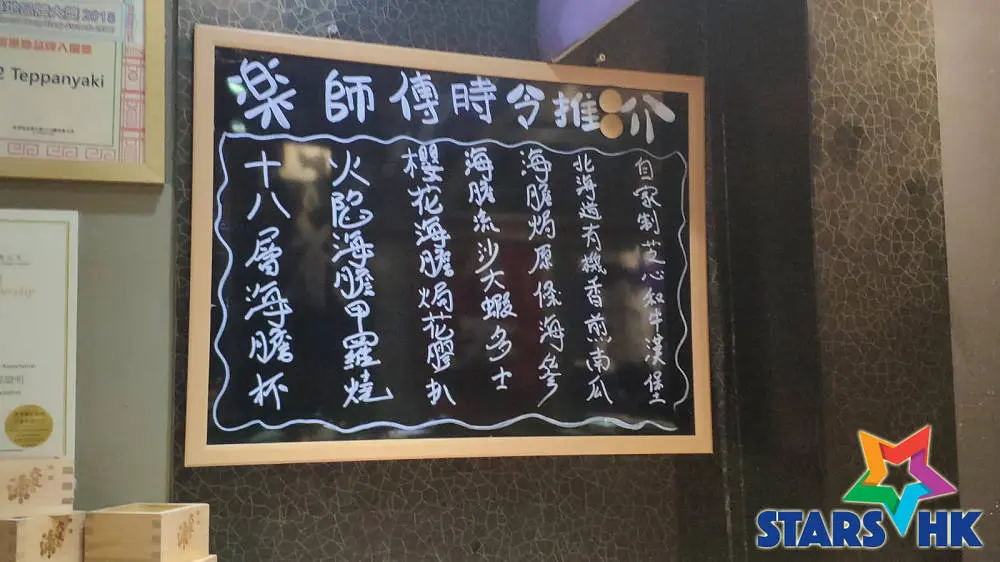 2018
2 Teppanyaki
Association
楽師傅時令推介
十八層海膽杯
火陷海膽甲羅燒
櫻花海膽焗花膠扒
海膽流沙大蝦多士
海膽焗原條海參
北海道有機香煎南瓜
自家制芝心和牛漢堡
STARS HK